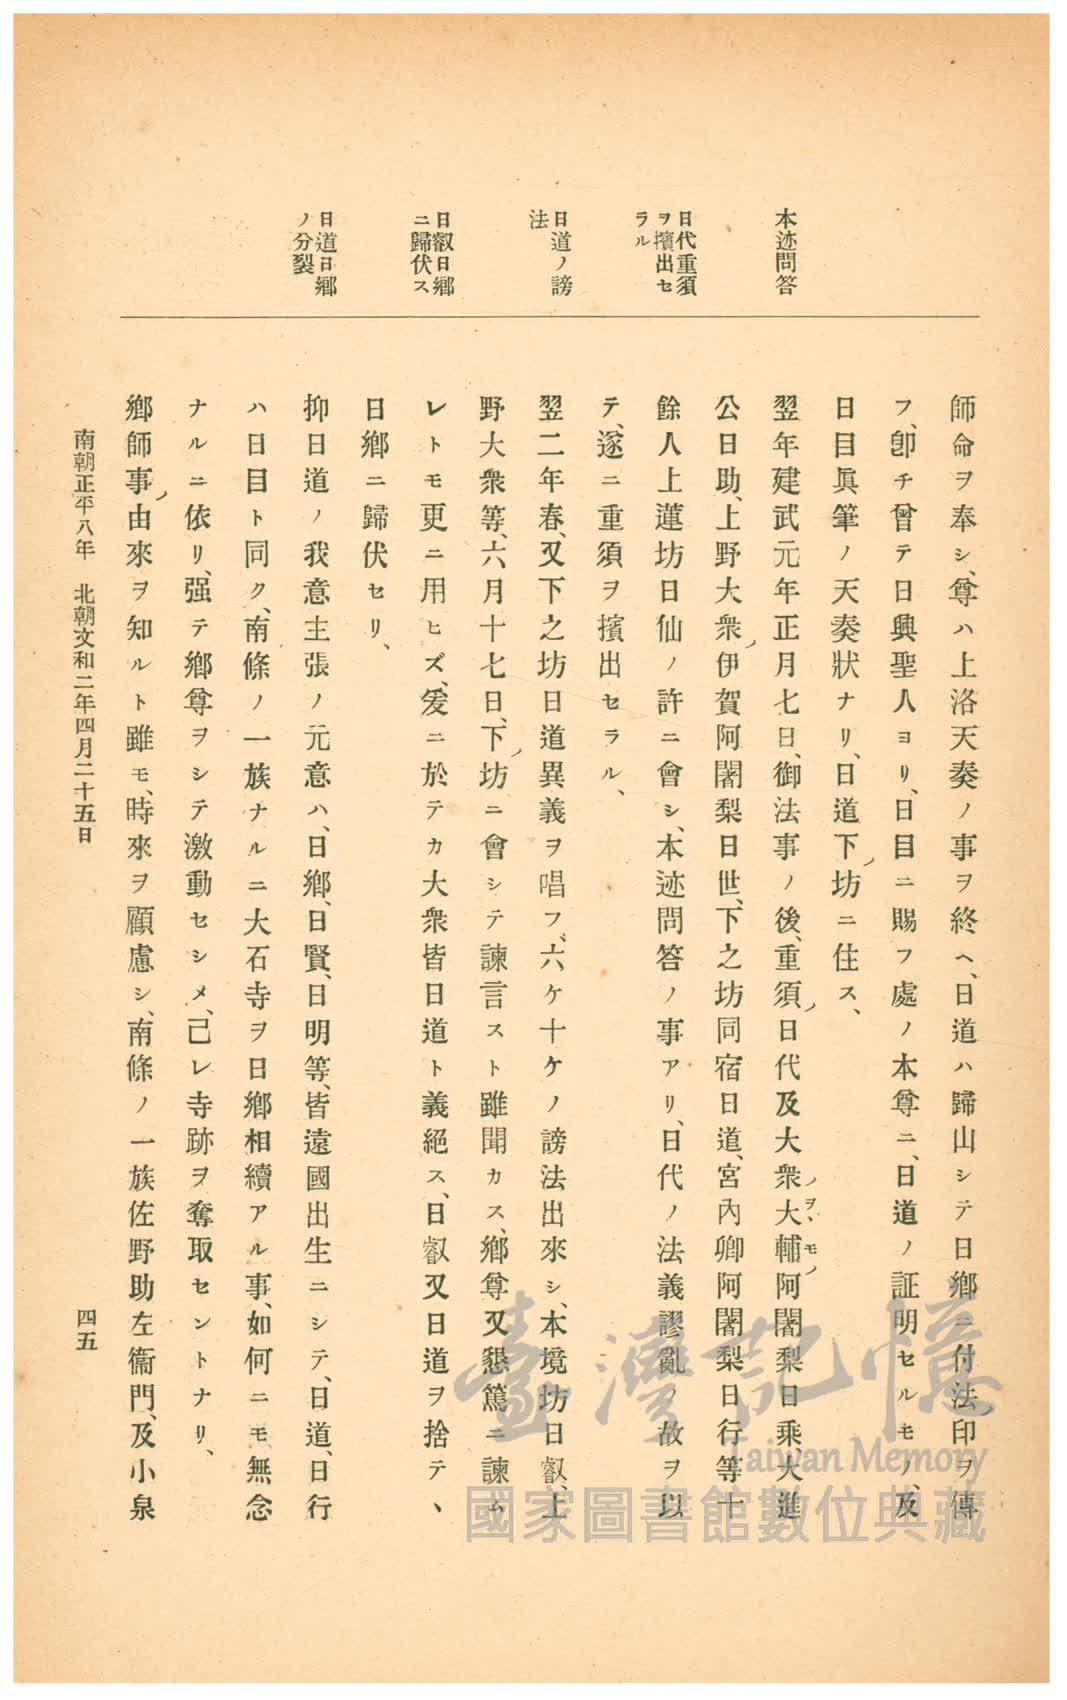 本迹問答
日代重須
ヲ擯出セ
ラル
日道ノ謗
法
日叡日郷
ニ歸伏ス
日道日郷
ノ分裂
師命ヲ奉シ、尊ハ上洛天奏ノ事ヲ終ヘ、日道ハ歸山シテ日鄕ニ付法ノ印ヲ傳
フ、卽チ曾テ日興聖人ヨリ、日目ニ賜フ處ノ本尊ニ、日道ノ証明セルモノ、及
日目眞筆ノ天奏狀ナリ、日道下ノ坊ニ住ス、
翌年建武元年正月七日、御法事ノ後、重須ノ日代及大衆ノヲ、大輔モノ阿闍梨日乘、大進
公日助、上野大衆ノ伊賀阿闍梨日世、下之坊同宿日道、宮內卿阿闍梨日行等十
餘人上蓮坊日仙ノ許ニ會シ、本迹問答ノ事アリ、日代ノ法義謬亂ノ故ヲ以
テ、遂ニ重須ヲ擯出セラル、
翌二年春、又下之坊日道異義ヲ唱フ、六ケ十ケノ謗法出來シ、本境坊日叡、上
野大衆等、六月十七日、下ノ坊ニ會シテ諫言スト雖聞カス、鄕尊又懇篤ニ諫ム
レトモ更ニ用ヒズ、爰ニ於テカ大衆皆日道ト義絕ス、日叡又日道ヲ捨テ、
日鄕ニ歸伏セリ、
抑日道ノ我意主張ノ元意ハ、日鄕、日賢、日明等、皆遠國出生ニシテ、日道、日行
ハ日目ト同ク、南條ノ一族ナルニ大石寺ヲ日鄕相續アル事、如何ニモ無念
ナルニ依リ、强テ鄕尊ヲシテ激動セシメ、己レ寺跡ヲ奪取セントナリ、
鄕師事ノ由來ヲ知ルト雖モ、時來ヲ顧慮シ、南條ノ一族佐野助左衞門、及小泉
南朝正平八年 北朝文和二年四月二十五日
四五
臺灣記憶
Taiwan Memory
國家圖書館數位典藏